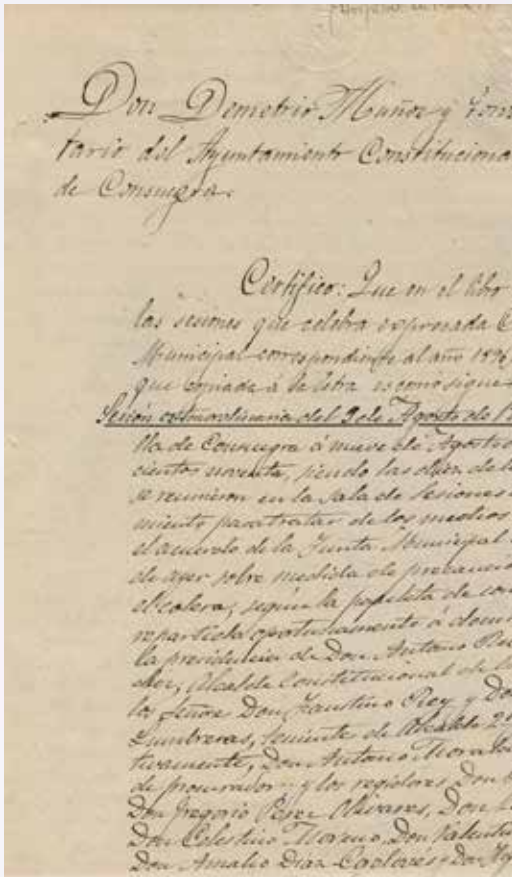 Don Demetrio Muñoz y
tario del Ayuntamiento Constitucional
de Consuegra.
Certifico: Que en el libro
las sesiones que celebra expresada
Municipal correspondiente al año 1890
que copiada a la letra es como sigue
Sesión extraordinaria del 9 de Agosto de
lla de Consuegra á nueve de Agosto
cientos noventa, siendo las diez de la
se reunieron en la Sala de Sesiones
miento para tratar de los medios
el acuerdo de la Junta Municipal
de ayer sobre medida de precaución
el cólera, según la papeleta de con
repartida oportunamente á domi
la presidencia de Don Antonio
Alcalde Constitucional de la
los Señores Don Faustino Rey y Don
Lumbreras, teniente de Alcalde
tivamente, Don Antonio Moral
de procurador y los regidores Don
Don Gregorio Perez Olivares, Don
Don Celestino Moreno, Don Valentin
Don Amalio Diaz Don